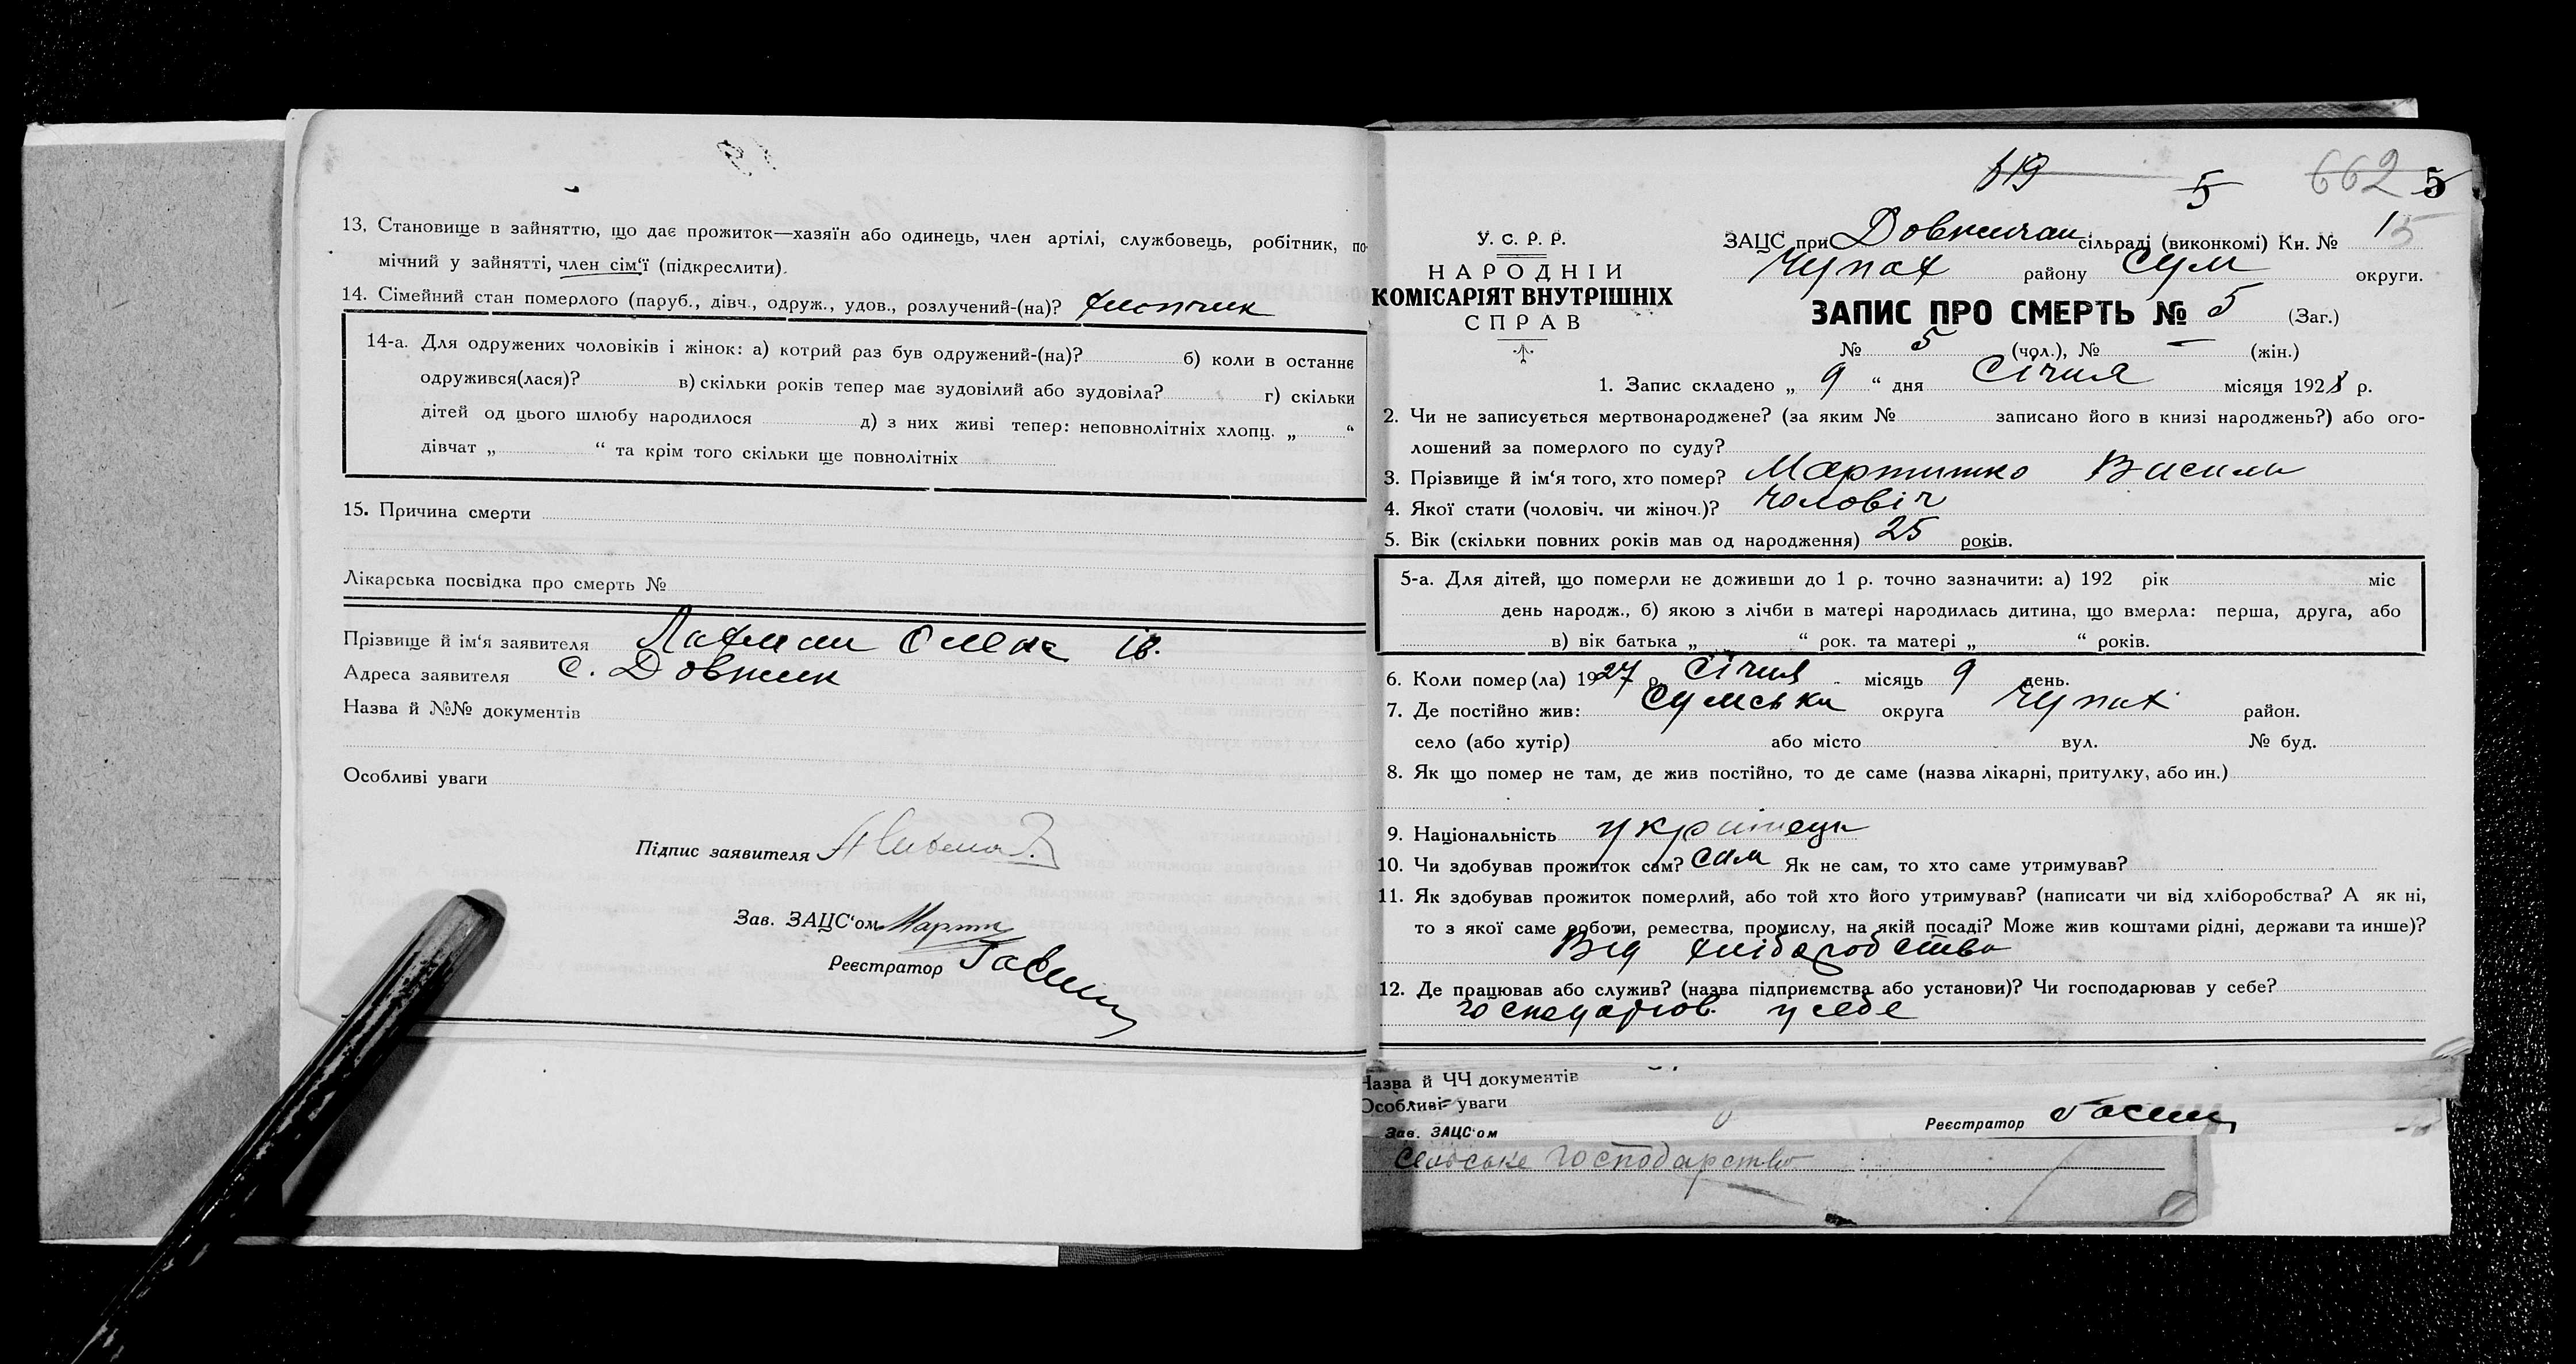 13. Становище в зайняттю, що дає прожиток—хазяїн або одинець, член артілі, службовець, робітник, по-
мічний у зайнятті, член сім'ї (підкреслити).
14. Сімейний стан померлого (паруб., дівч., одруж., удов., розлучений-(на)? хлопчик
14-а. Для одружених чоловіків і жінок: а) котрий раз був одружений-(на)? б) коли в останнє
одружився(лася)? в) скільки років тепер має зудовілий або зудовіла? г) скільки
дітей од цього шлюбу народилося д) з них живі тепер: неповнолітніх хлопц. „ “
дівчат „ “ та крім того скільки ще повнолітніх
15. Причина смерти
Лікарська посвідка про смерть №
Прізвище й ім'я заявителя Ів.
Адреса заявителя с. Довжик
Назва й №№ документів
Особливі уваги
Підпис заявителя
Зав. ЗАЦС'ом Март
Реєстратор
119 5 662 5
У. С. Р. Р.
НАРОДНІЙ
КОМІСАРІЯТ ВНУТРІШНІХ
СПРАВ
ЗАЦС при Довжичан сільраді (виконкомі) Кн. № 15
Чупах району Сум округи.
ЗАПИС ПРО СМЕРТЬ № 5 (Заг.)
№ 5 (чол.), № — (жін.)
1. Запис складено „ 9 “ дня Січня місяця 1928 р.
2. Чи не записується мертвонароджене? (за яким № записано його в книзі народжень?) або ого-
лошений за померлого по суду?
3. Прізвище й ім'я того, хто помер? Мартишко Василь
4. Якої стати (чоловіч. чи жіноч.)? чоловіч
5. Вік (скільки повних років мав од народження) 25 років.
5-а. Для дітей, що померли не доживши до 1 р. точно зазначити: а) 192 рік міс
день народж., б) якою з лічби в матері народилась дитина, що вмерла: перша, друга, або
в) вік батька „ “ рок. та матері „ “ років.
6. Коли помер(ла) 1927 р. Січня місяць 9 день.
7. Де постійно жив: Сумська округа Чупах район.
село (або хутір) або місто вул. № буд.
8. Як що помер не там, де жив постійно, то де саме (назва лікарні, притулку, або ин.)
9. Національність українець
10. Чи здобував прожиток сам? сам Як не сам, то хто саме утримував?
11. Як здобував прожиток померлий, або той хто його утримував? (написати чи від хліборобства? А як ні,
то з якої саме роботи, ремества, промислу, на якій посаді? Може жив коштами рідні, держави та инше)?
Від хліборобства
12. Де працював або служив? (назва підприємства або установи)? Чи господарював у себе?
господарюв. у себе
Назва й ЧЧ документів
Особливі уваги
Зав. ЗАЦС'ом Реєстратор
сельське господарство